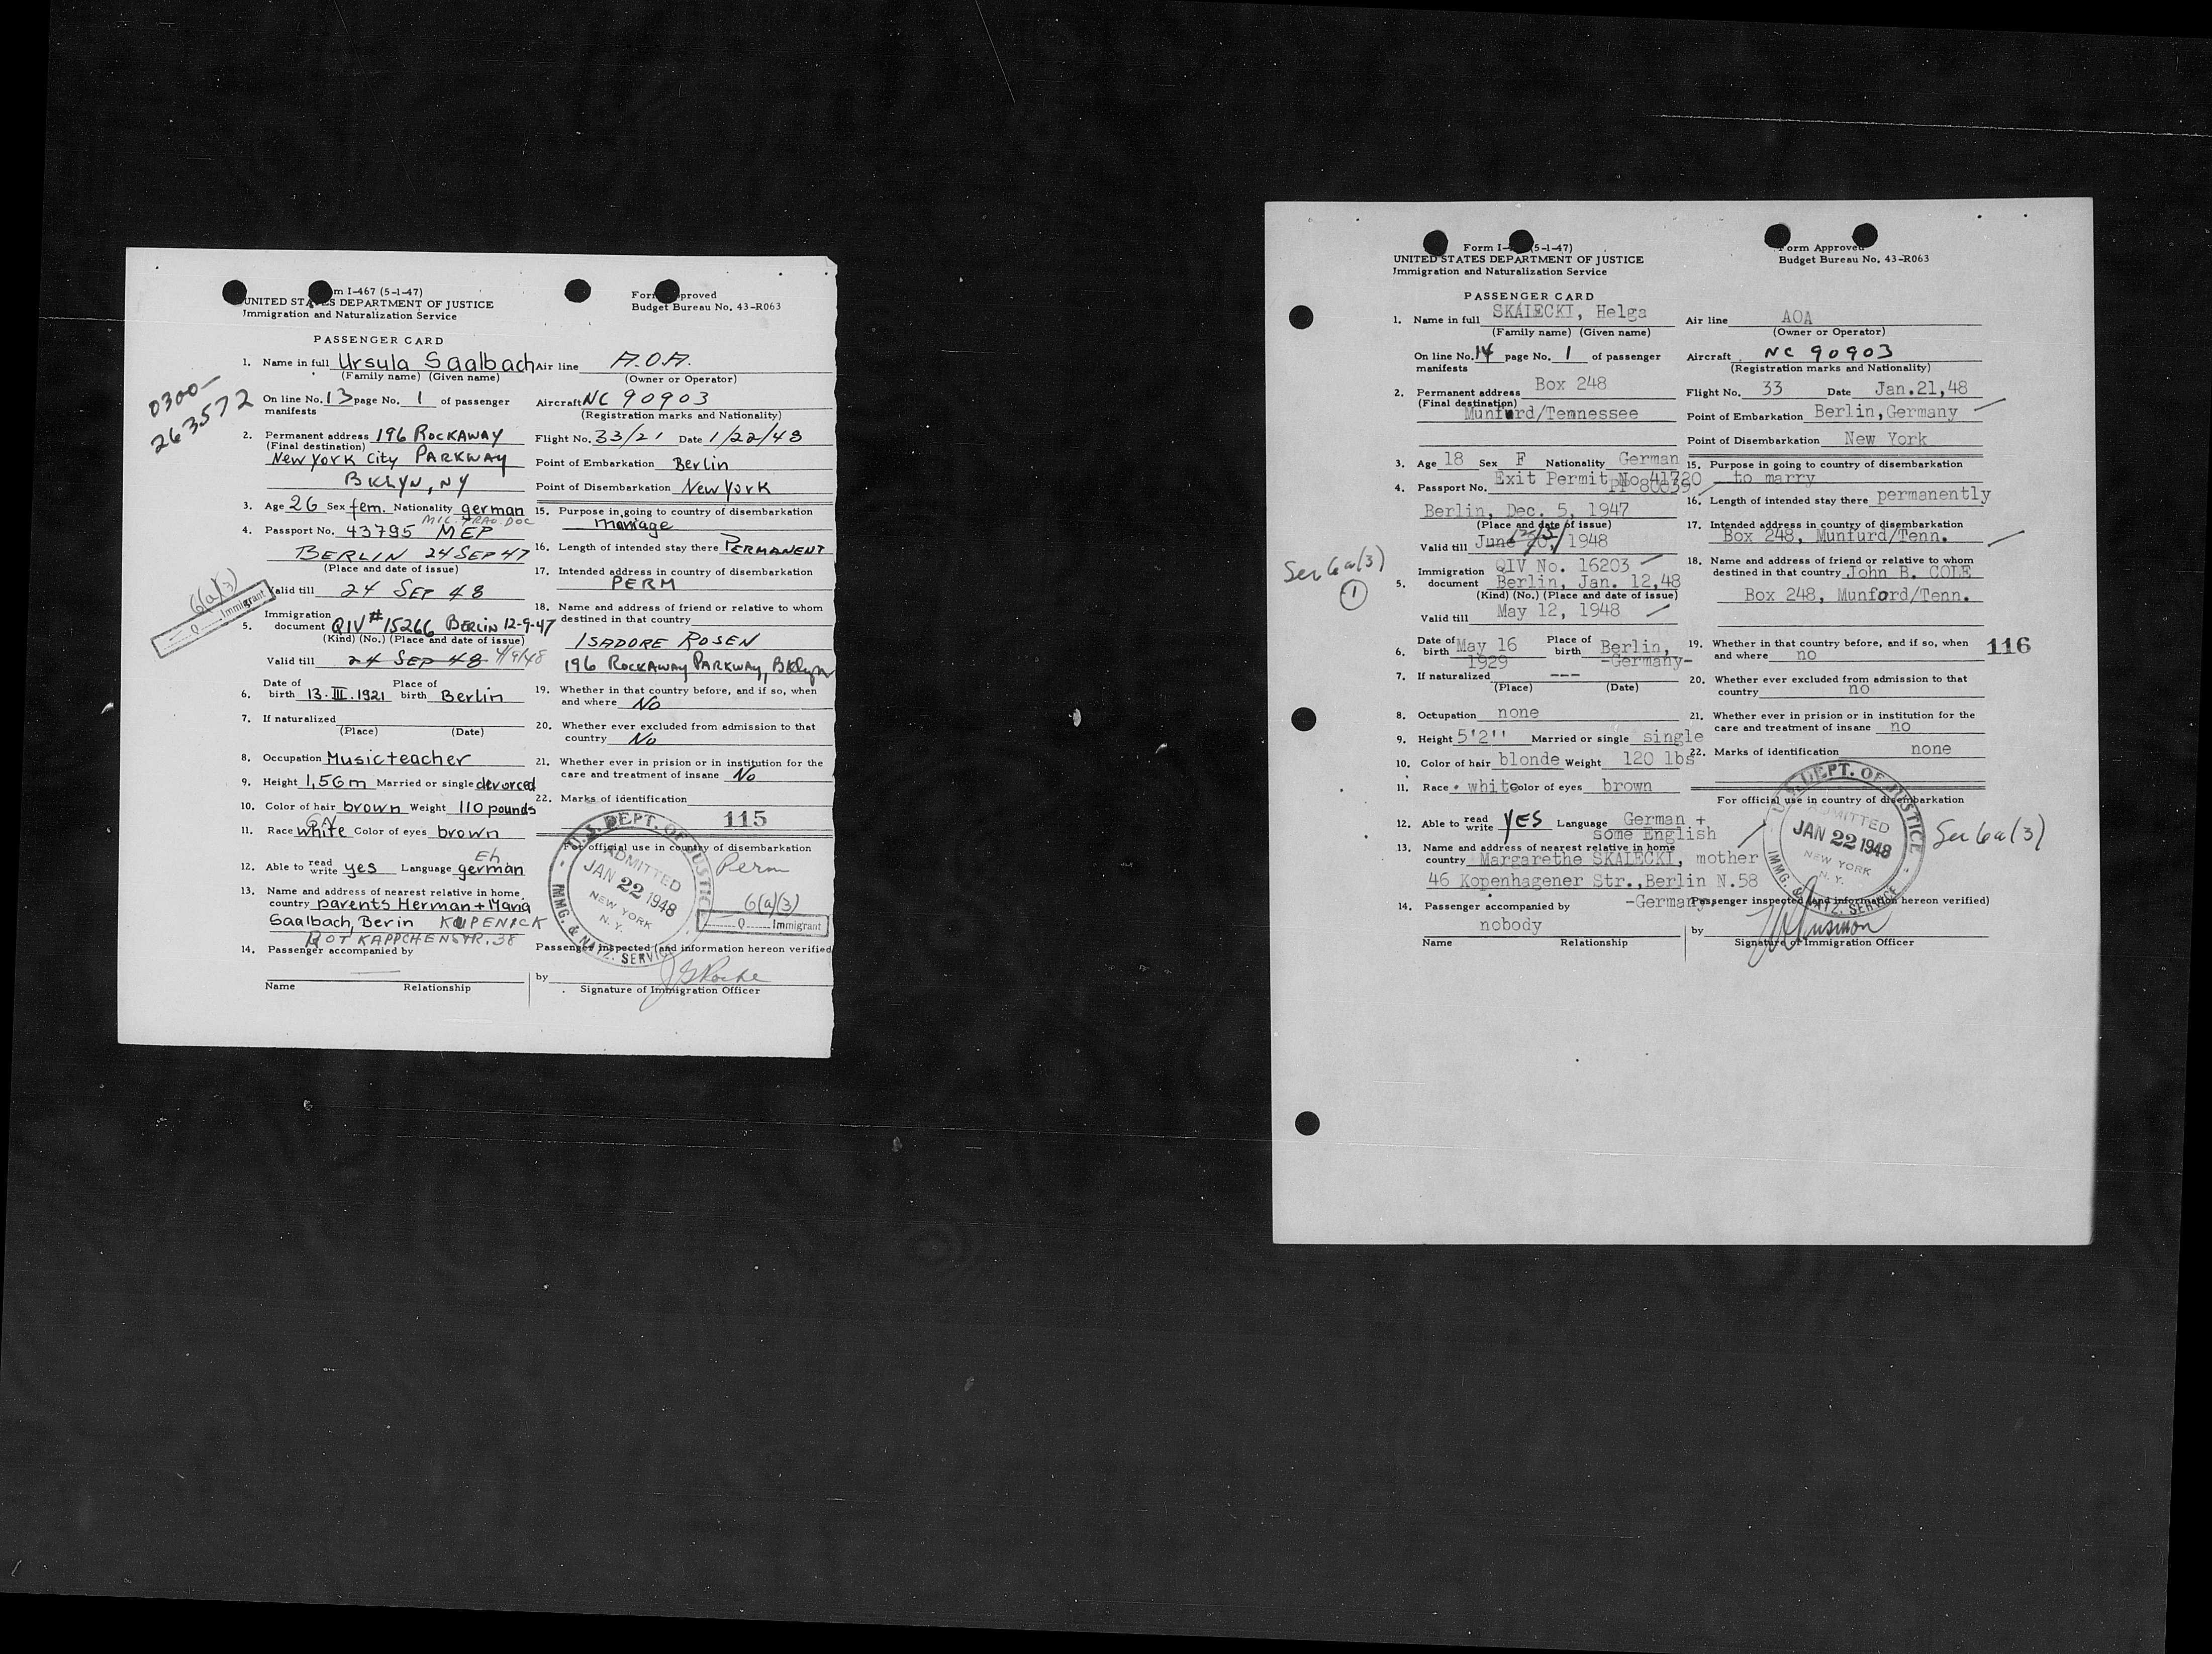 Form I-467 (5-1-47)
UNITED STATES DEPARTMENT OF JUSTICE
Immigration and Naturalization Service
Form Approved
Budget Bureau No. 43-R063
PASSENGER CARD
1. Name in full Ursula Saalbach
(Family name) (Given name)
On line No. 13 page No. 1 of passenger
manifests
0300-
263572
2. Permanent address 196 ROCKAWAY
(Final destination)
New York City PARKWAY
BKLYN, NY
3. Age 26 Sex fem. Nationality german
MIL. TRAV. DOC
4. Passport No. 43795 MEP
BERLIN 24 SEP 47
(Place and date of issue)
Valid till 24 SEP 48
6(a)(3)
Q Immigrant
5. Immigration
document QIV #15266 BERLIN 12-9-47
(Kind) (No.) (Place and date of issue)
Valid till 24 SEP 48 4/9/48
6. Date of
birth 13.III.1921 Place of
birth Berlin
7. If naturalized
(Place) (Date)
8. Occupation Musicteacher
9. Height 1,56m Married or single devorced
10. Color of hair brown Weight 110 pounds
11. Race white Color of eyes brown
Eh.
12. Able to read
write yes Language german
13. Name and address of nearest relative in home
country parents Herman + Maria
Saalbach, Berin KUPENICK
ROTKAPPCHENSTR. 38
14. Passenger accompanied by
Name Relationship
Air line A.O.A.
(Owner or Operator)
Aircraft NC 90903
(Registration marks and Nationality)
Flight No. 33/21 Date 1/22/48
Point of Embarkation Berlin
Point of Disembarkation New York
15. Purpose in going to country of disembarkation
marriage
16. Length of intended stay there PERMANENT
17. Intended address in country of disembarkation
PERM
18. Name and address of friend or relative to whom
destined in that country
ISADORE ROSEN
196 ROCKAWAY PARKWAY, BKlyn
19. Whether in that country before, and if so, when
and where No
20. Whether ever excluded from admission to that
country No
21. Whether ever in prision or in institution for the
care and treatment of insane No
22. Marks of identification
115
For official use in country of disembarkation
U.S. DEPT. OF JUSTICE
ADMITTED
JAN 22 1948
NEW YORK
N. Y.
IMMG. & NATZ. SERVICE
Perm
6(a)(3)
Q Immigrant
Passenger inspected (and information hereon verified
by
Signature of Immigration Officer
Form I- (5-1-47)
UNITED STATES DEPARTMENT OF JUSTICE
Immigration and Naturalization Service
Form Approved
Budget Bureau No. 43-R063
PASSENGER CARD
1. Name in full SKAIECKI, Helga
(Family name) (Given name)
On line No. 14 page No. 1 of passenger
manifests
2. Permanent address Box 248
(Final destination)
Munfurd/Temnessee
3. Age 18 Sex F Nationality German
4. Passport No. Exit Permit No 41720
PP 80039
Berlin, Dec. 5, 1947
(Place and date of issue)
Valid till June 20, 1948 12/5/
Sec 6a(3)
1
5. Immigration
document QIV No. 16203
Berlin, Jan. 12,48
(Kind) (No.) (Place and date of issue)
Valid till May 12, 1948
6. Date of
birth May 16
1929 Place of
birth Berlin,
-Germany-
7. If naturalized ---
(Place) (Date)
8. Occupation none
9. Height 5'2'' Married or single single
10. Color of hair blonde Weight 120 lbs
11. Race white Color of eyes brown
12. Able to read
write YES Language German +
some English
13. Name and address of nearest relative in home
country Margarethe SKAIECKI, mother
46 Kopenhagener Str.,Berlin N.58
-Germany-
14. Passenger accompanied by
nobody
Name Relationship
Air line AOA
(Owner or Operator)
Aircraft NC 90903
(Registration marks and Nationality)
Flight No. 33 Date Jan.21,48
Point of Embarkation Berlin,Germany
Point of Disembarkation New York
15. Purpose in going to country of disembarkation
to marry
16. Length of intended stay there permanently
17. Intended address in country of disembarkation
Box 248, Munfurd/Tenn.
18. Name and address of friend or relative to whom
destined in that country John B. COLE
Box 248, Munford/Tenn.
19. Whether in that country before, and if so, when
and where no
116
20. Whether ever excluded from admission to that
country no
21. Whether ever in prision or in institution for the
care and treatment of insane no
22. Marks of identification none
For official use in country of disembarkation
U.S. DEPT. OF JUSTICE
ADMITTED
JAN 22 1948
NEW YORK
N. Y.
IMMG. & NATZ. SERVICE
Sec 6a(3)
Passenger inspected (and information hereon verified)
by
Signature of Immigration Officer